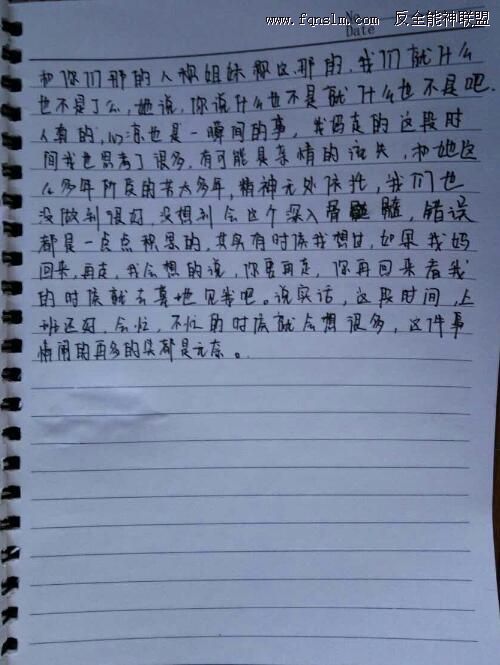 www.fqnslm.com 反全能神联盟
No
Date
和你们那的人称姐妹称这那的,我们就什么
也不是了么,她说,你说什么也不是就什么也不是吧.
人真的,心凉也是一瞬间的事,我妈走的这段时
间我也思考了很多,有可能是亲情的流失,和她这
么多年阶段的苦大多年,精神无处依托,我们也
没做到很好,没想到会这个深入骨髓,错误
都是一点点积累的,其实有时候我想过,如果我妈
回来,再走,我会想的说,你要再走,你再回来看我
的时候就去墓地见我吧。说实话,这段时间,上
班还好,会忙,不忙的时候就会想很多,这件事
情闹的再多的只都是无奈。